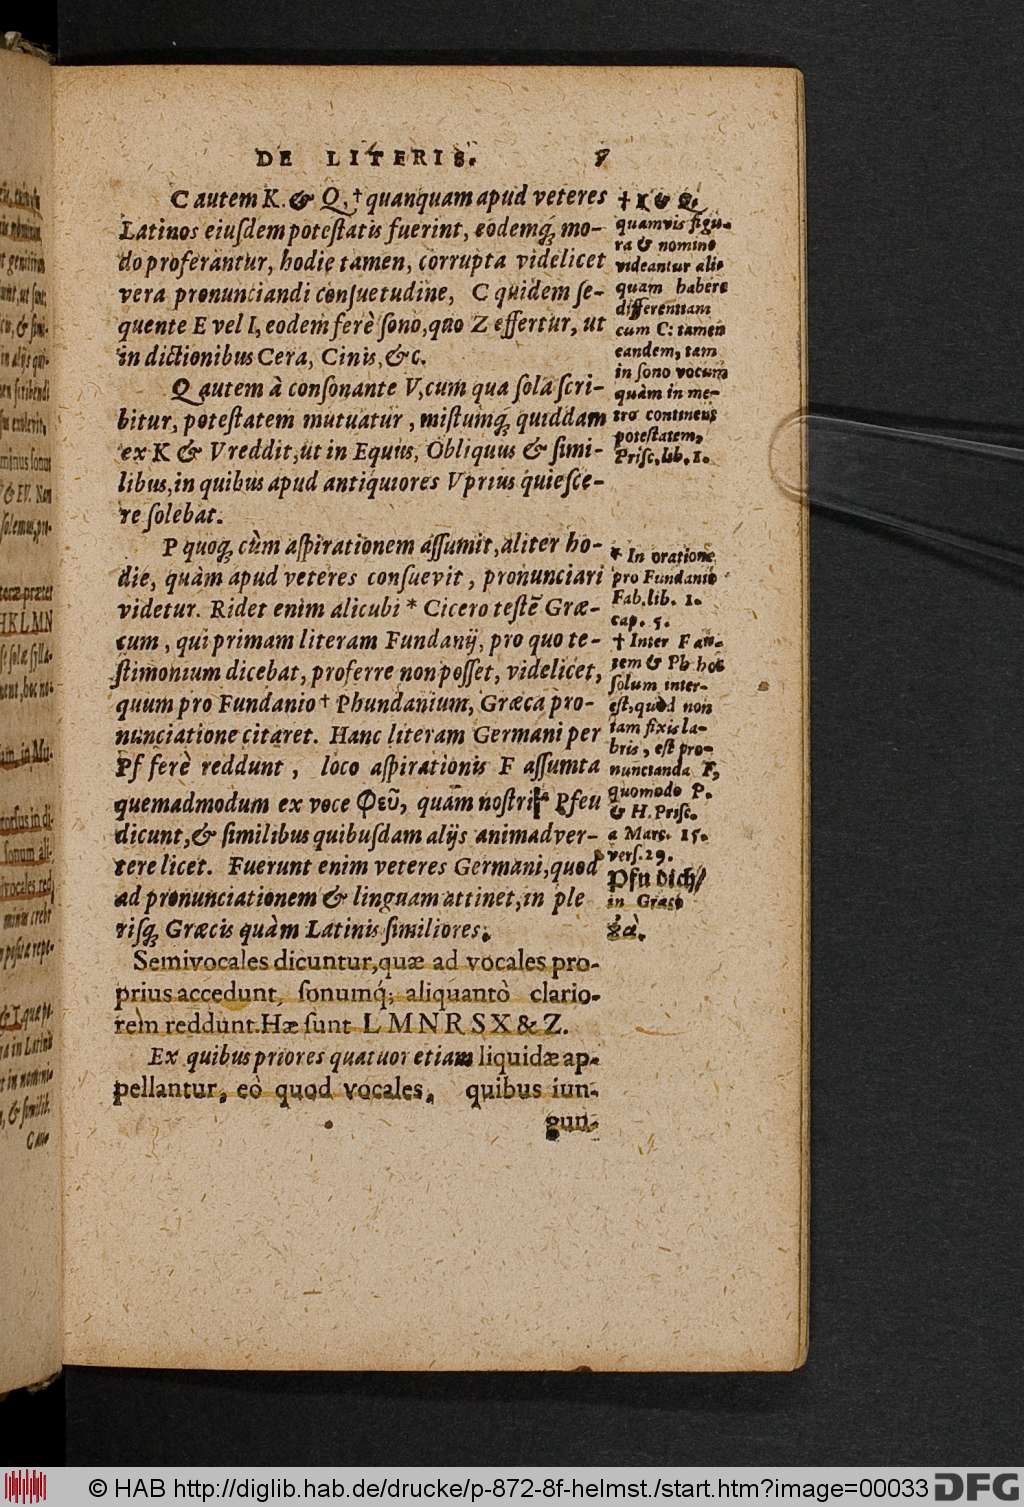 DE LITERIS.
C autem K. & Q, † quanquam apud veteres
Latinos eiusdem potestatis fuerint, eodemq́; mo-
do proferantur, hodie tamen, corrupta videlicet
vera pronunciandi consuetudine, C quidem se-
quente E vel I, eodem ferè sono, quo Z effertur, ut
in dictionibus Cera, Cinis, &c.
Q autem à consonante V, cum qua sola scri-
bitur, potestatem mutuatur, mistumq́; quiddam
ex K & V reddit, ut in Equus, Obliquus & simi-
libus, in quibus apud antiquiores V prius quiesce-
re solebat.
P quoq; cùm aspirationem assumit, aliter ho-
die, quàm apud veteres consuevit, pronunciari
videtur. Ridet enim alicubi * Cicero testē Græ-
cum, qui primam literam Fundanij, pro quo te-
stimonium dicebat, proferre non posset, videlicet,
quum pro Fundanio † Phundanium, Græca pro-
nunciatione citaret. Hanc literam Germani per
Pf ferè reddunt, loco aspirationis F assumta
quemadmodum ex voce Φεῦ, quam nostri Pfeu
dicunt, & similibus quibusdam alijs animadver-
tere licet. Fuerunt enim veteres Germani, quod
ad pronunciationem & linguam attinet, in ple
risq; Græcis quàm Latinis similiores.
Semivocales dicuntur, quæ ad vocales pro-
prius accedunt, sonumq́; aliquantò clario-
rem reddunt. Hæ sunt L M N R S X & Z.
Ex quibus priores quatuor etiam liquidæ ap-
pellantur, eò quod vocales, quibus iun-
gun-
† K & Q.
quamvis figu-
ra & nomine
videantur ali-
quam habere
differentiam
cum C: tamen
eandem, tam
in sono vocum
quàm in me-
tro continent
potestatem,
Prisc. lib. 1.
* In oratione
pro Fundanio
Fab. lib. 1.
cap. 5.
† Inter F au-
tem & Ph hoc
solum inter-
est, quòd non
tam fixis la-
bris, est pro-
nuncianda F,
quomodo P.
& H. Prisc.
a Marc. 15.
vers. 29.
Pfu dich/
in Græco
© HAB http://diglib.hab.de/drucke/p-872-8f-helmst./start.htm?image=00033
DFG